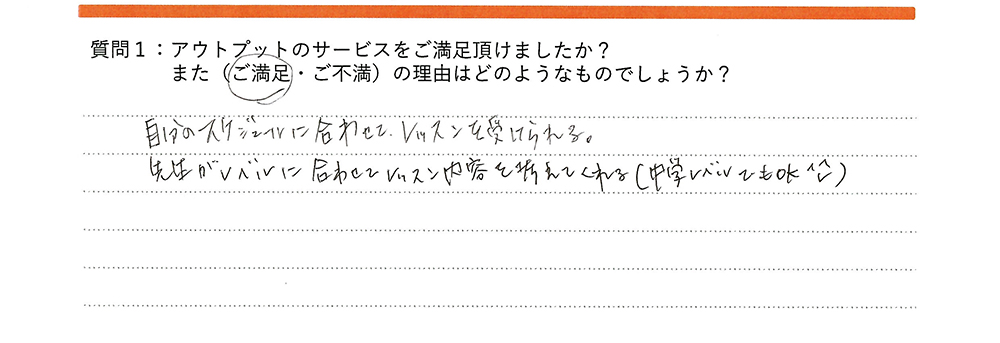 質問1：アウトプットのサービスをご満足頂けましたか？
また（ご満足・ご不満）の理由はどのようなものでしょうか？
自分のスケジュールに合わせて、レッスンを受けられる。
先生がレベルに合わせてレッスン内容を考えてくれる(中学レベルでもOK^^)